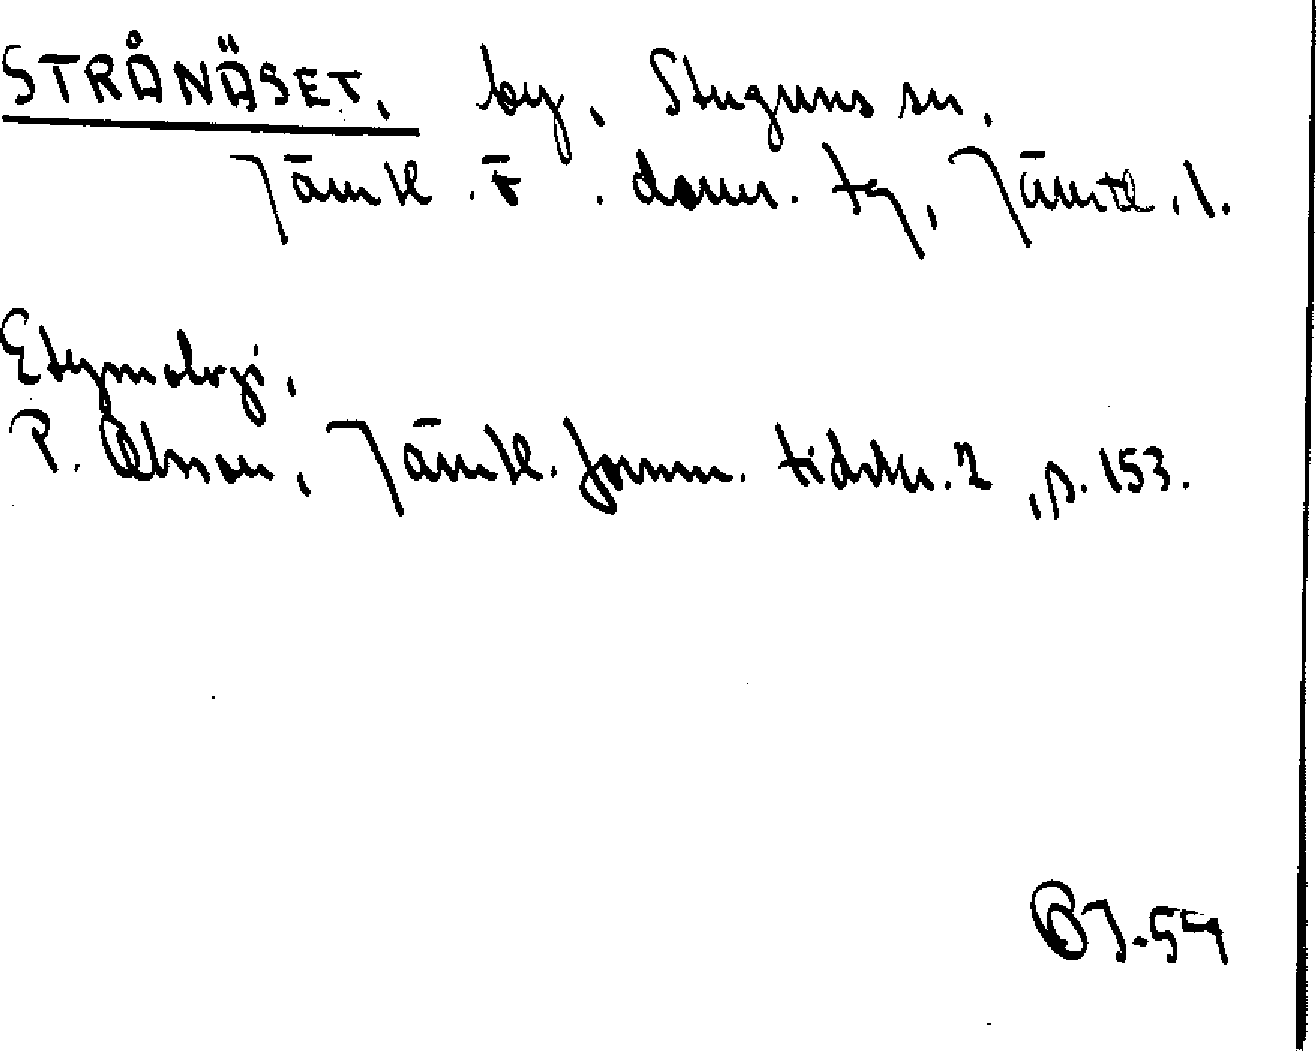 STRÅNÄSET, by, Stuguns sn,
Jämtl. ö. doms. tg, Jämtl. l.
Etymologi,
P. Olsson, Jämtl. fornm. tidskr. 2, p. 153.
BJ-59